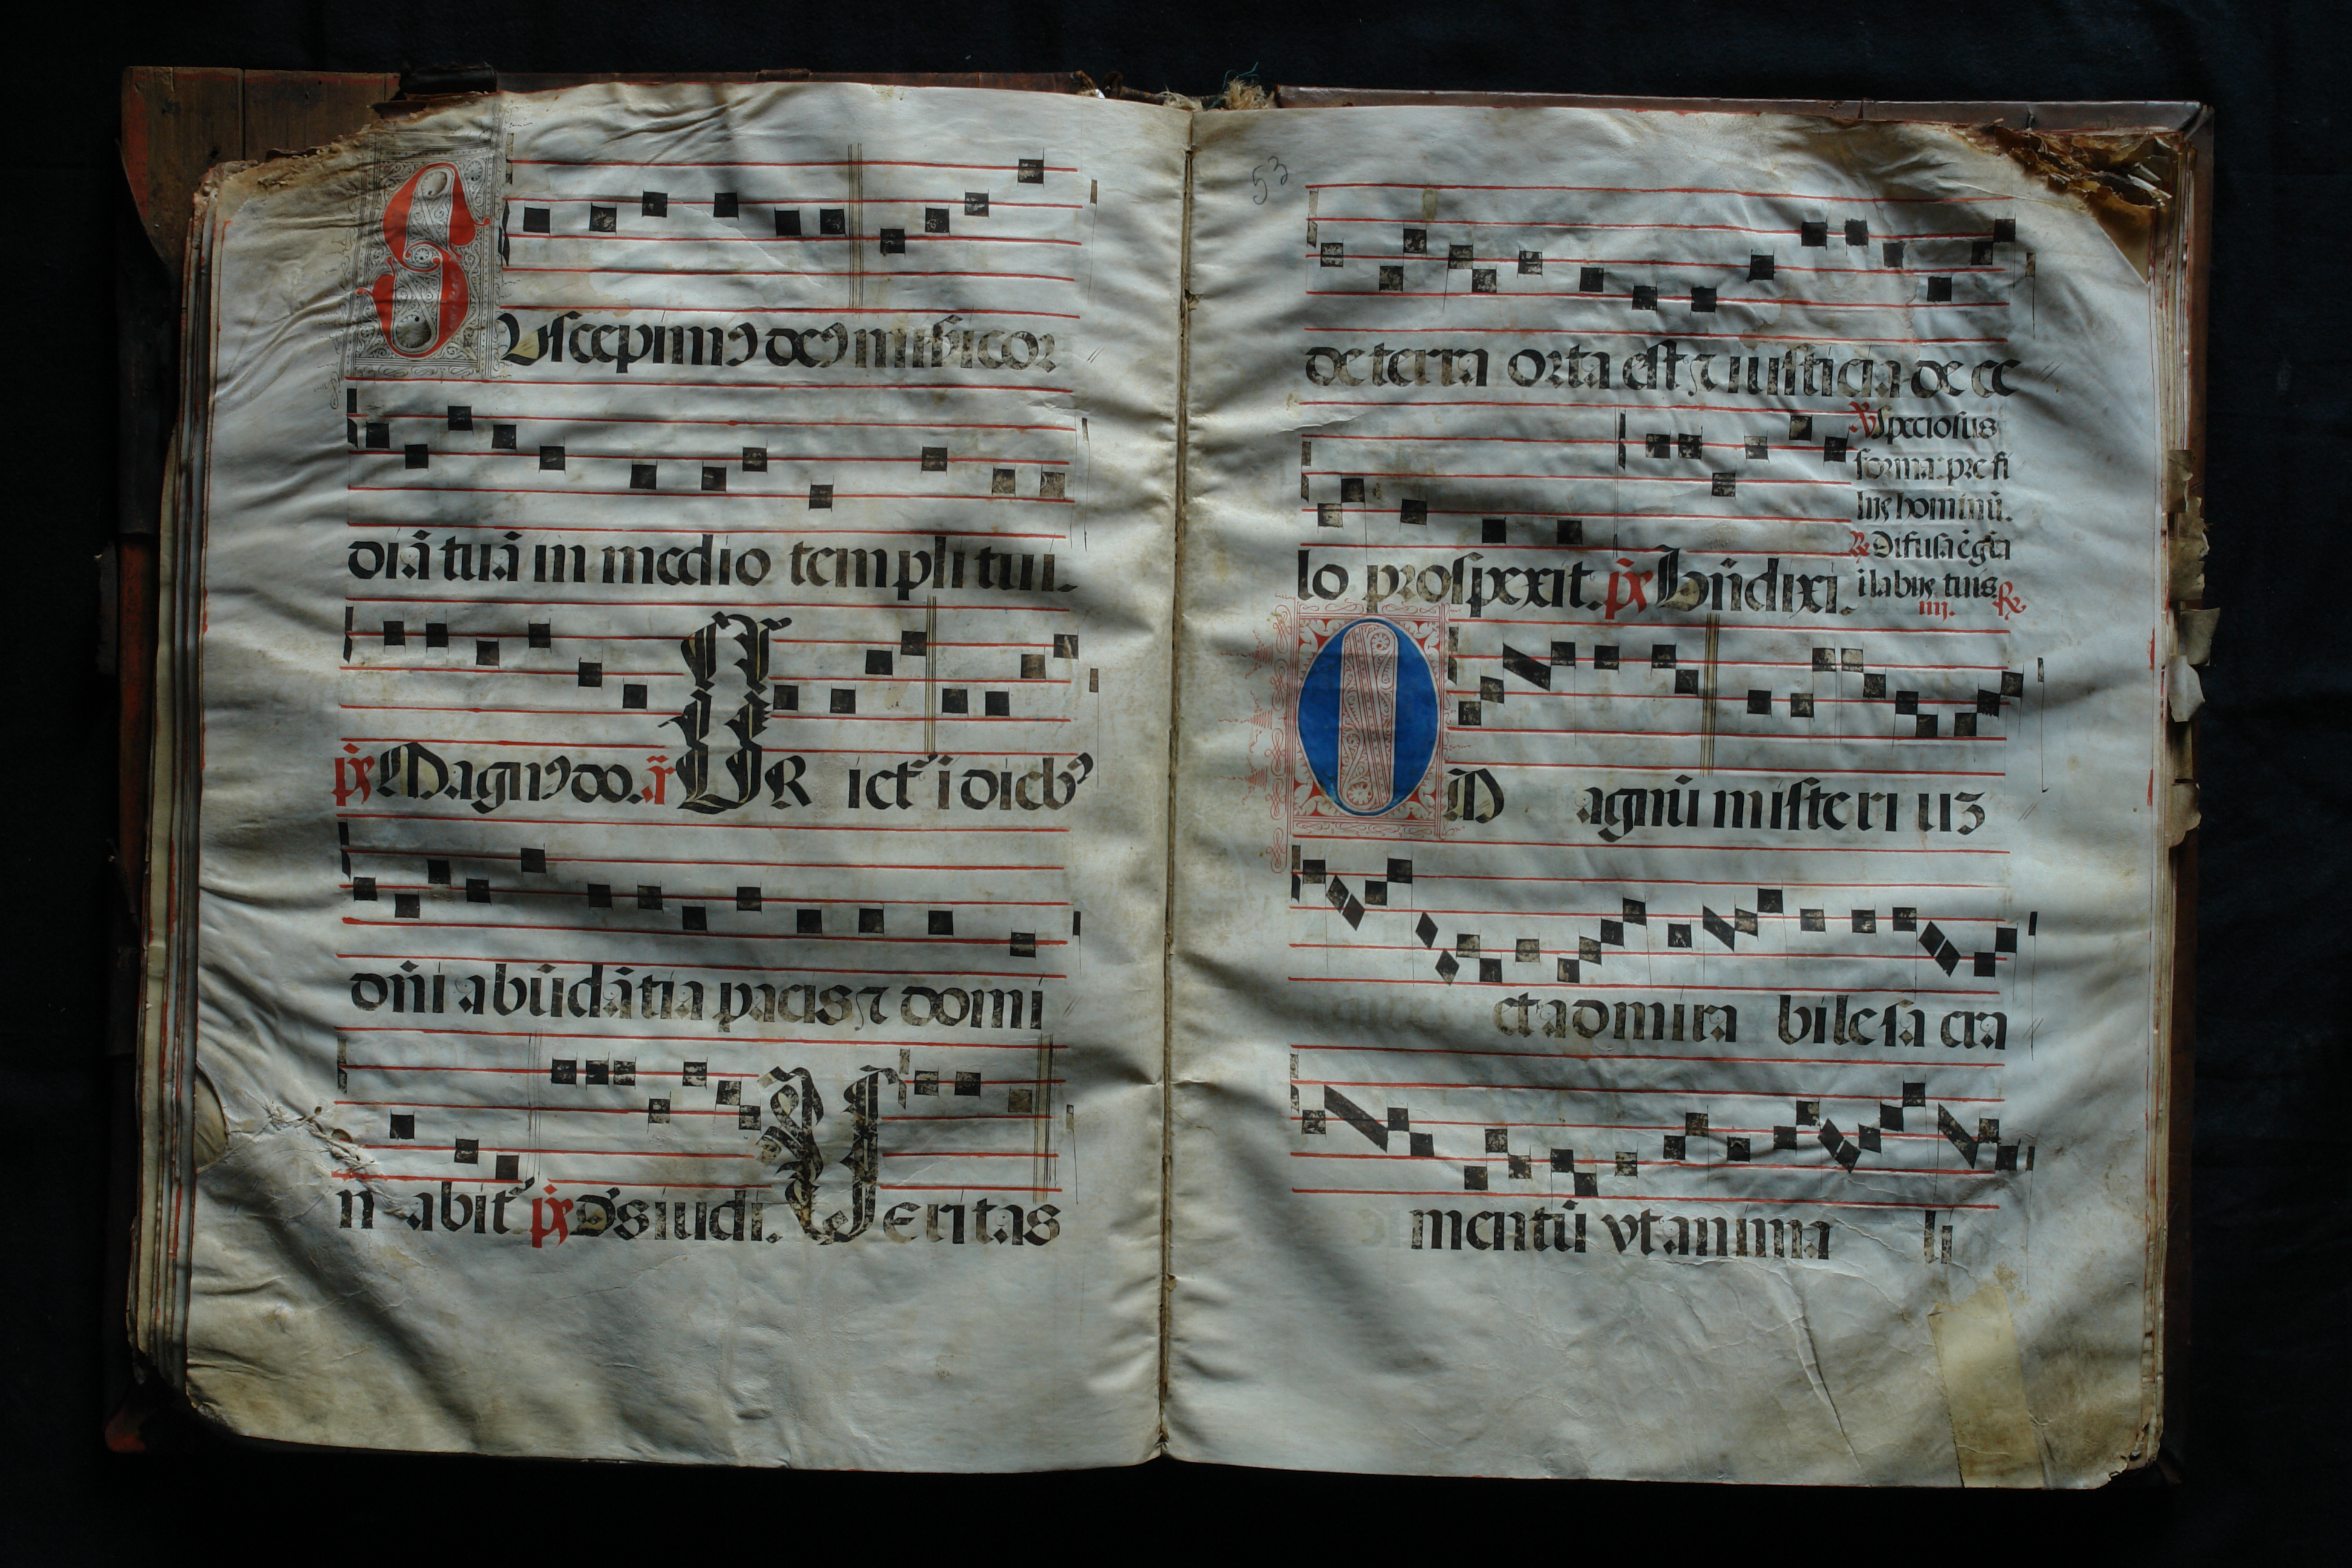 Suscepimꝰ deꝰ misericor
diā tuā in medio templi tui.
p̄s Magnꝰ do. ã. Ur iet͛ i dieb᷒
dn̄i abūdātia pacis ⁊ domi
n abit͛ p̄s Ds iudi. ã. Veritas
53
de terra orta est ⁊ iusticia de ce
lo prospexit. p̄s Bn̄dixi.
℣ Speciosus
forma: pre fi
liis hominū.
℟ Difusa ē gr̄a
i labiis tuis
iiii. ℟
O M agnū misteri uꝫ
et admira bile sa cra
mentū vt anima li